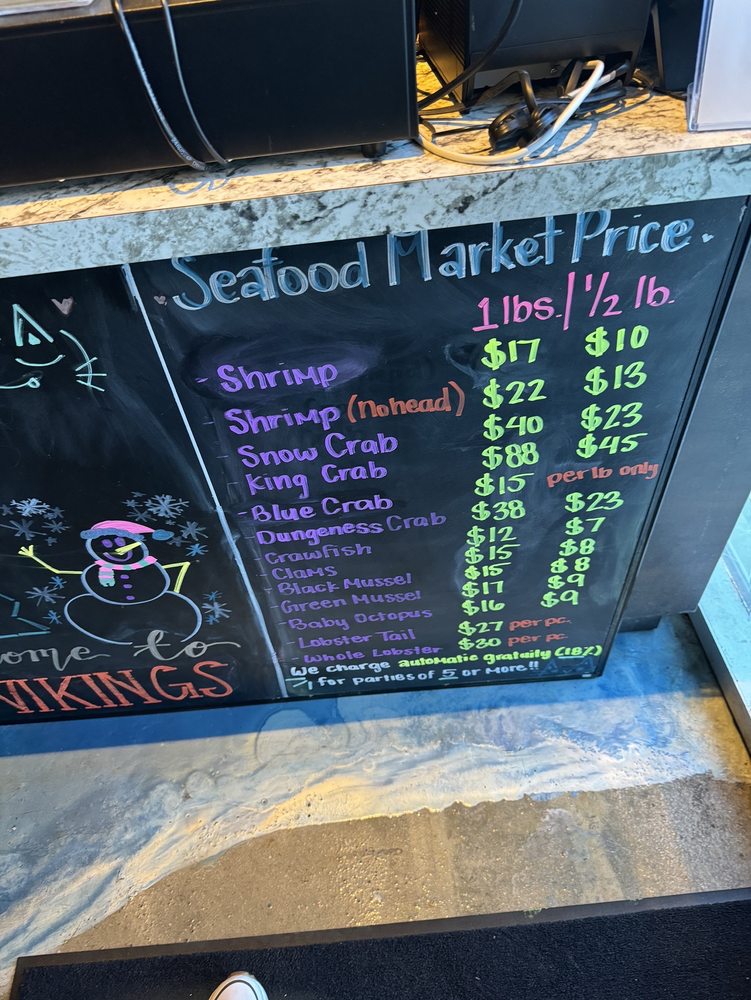 Seafood Market Price
1 lbs. / 1/2 lb.
- Shrimp $17 $10
- Shrimp (No head) $22 $13
- Snow Crab $40 $23
- King Crab $88 $45
- Blue Crab $15 per lb only
- Dungeness Crab $38 $23
- Crawfish $12 $7
- Clams $15 $8
- Black Mussel $15 $8
- Green Mussel $17 $9
- Baby Octopus $16 $9
- Lobster Tail $27 per pc.
- Whole Lobster $30 per pc.
We charge automatic gratuity (18%)
for parties of 5 or More!!
ome to
VIKINGS